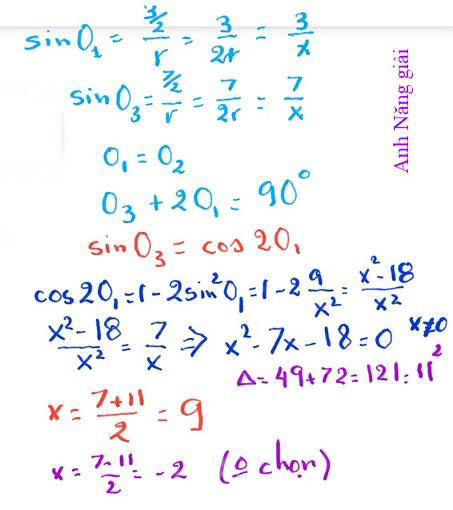 sinO₁ = (3/2)/r = 3/2r = 3/x
sinO₃ = (7/2)/r = 7/2r = 7/x
O₁ = O₂
O₃ + 2O₁ = 90°
sinO₃ = cos2O₁
cos2O₁ = 1 - 2sin²O₁ = 1 - 2 9/x² = (x² - 18)/x²
(x² - 18)/x² = 7/x ⇒ x² - 7x - 18 = 0 x≠0
Δ = 49 + 72 = 121 = 11²
x = (7 + 11)/2 = 9
x = (7 - 11)/2 = -2 (o chọn)
Anh Năng giải